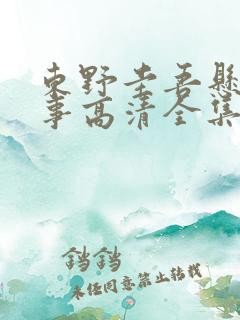 東野圭吾懸
事高清全集
铛铛
未经同意禁止转载